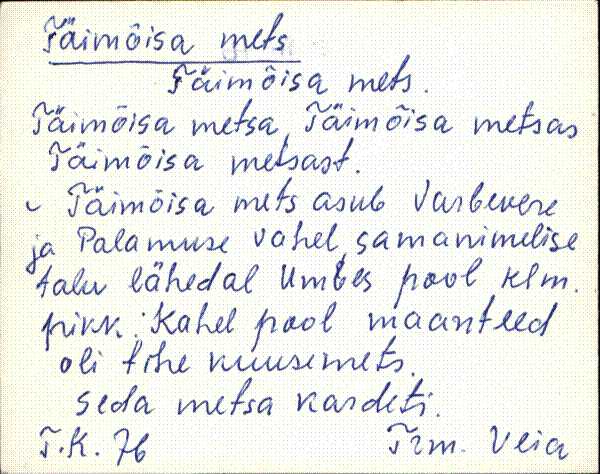 Täimõisa mets
Täimõisa mets.
Täimõisa metsa, Täimõisa metsas
Täimõisa metsast.
Täimõisa mets asub Varbevere
ja Palamuse vahel, samanimelise
talu lähedal Umbes pool klm.
pikk. Kahel pool maanteed
oli tihe kuusemets.
Seda metsa kardeti.
T.K. 76 Trm. Veia